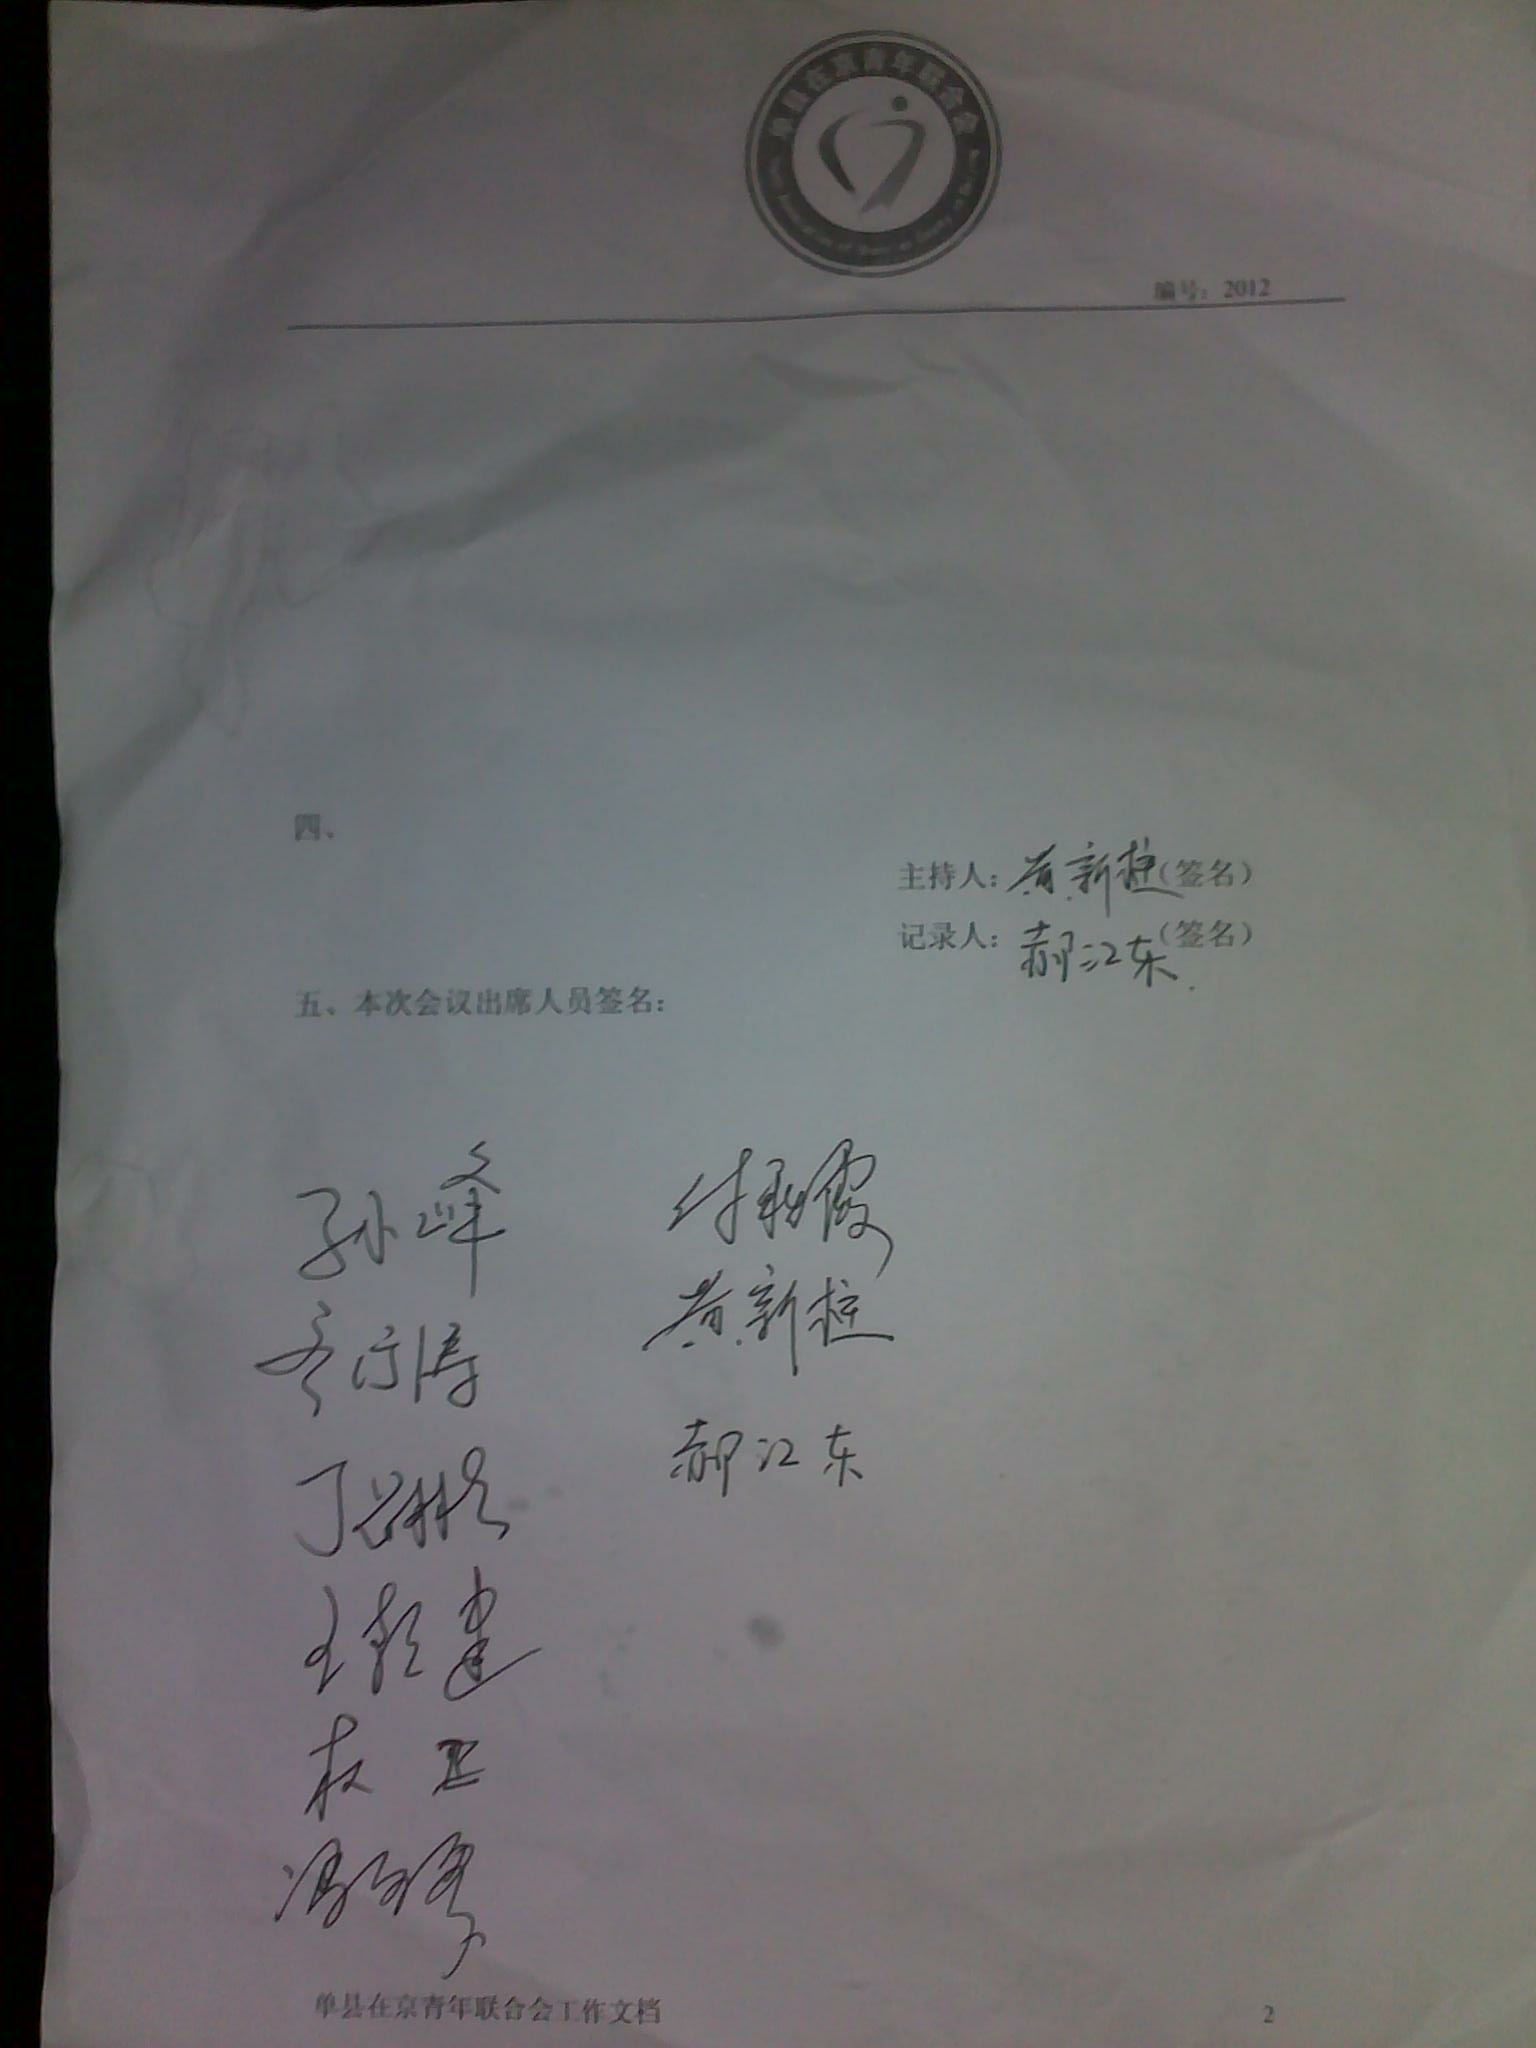 单县在京青年联合会
编号：2012
四、
主持人：黄新柱（签名）
记录人：郝江东（签名）
五、本次会议出席人员签名：
孙峰
付 霞
黄新柱
郝江东
丁
王 建
单县在京青年联合会工作文档
2